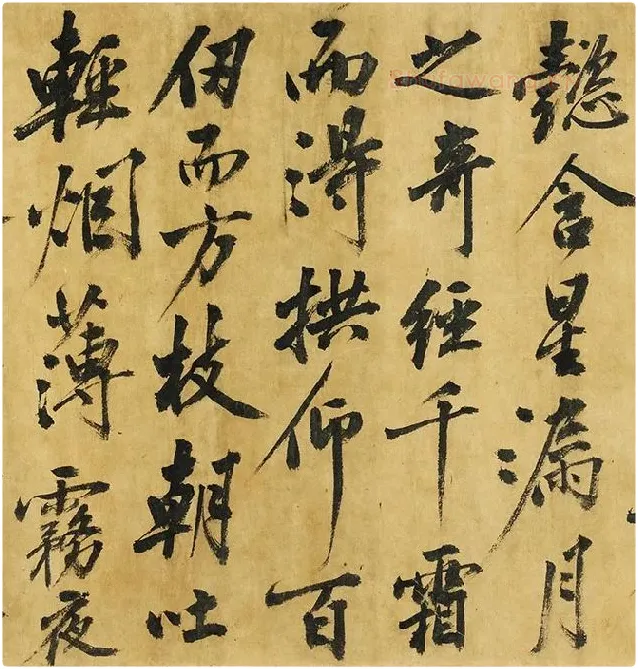 懿含星漏月
之奇經千霜
而得拱仰百
仞而方枝朝吐
輕烟薄霧夜